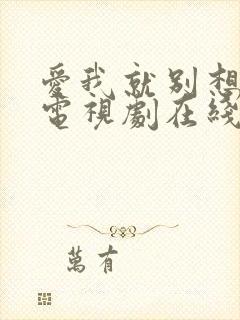 愛我就別想
電視劇在綫
萬有